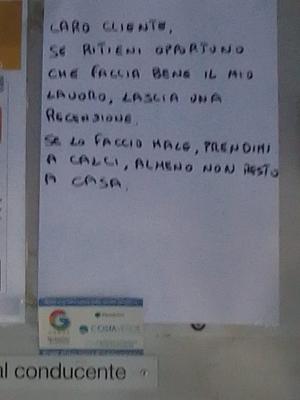 CARO CLIENTE,
SE RITIENI OPORTUNO
CHE FACCIA BENE IL MIO
LAVORO, LASCIA UNA
RECENSIONE.
SE LO FACCIO MALE, PRENDIMI
A CALCI, ALMENO NON RESTO
A CASA.
al conducente